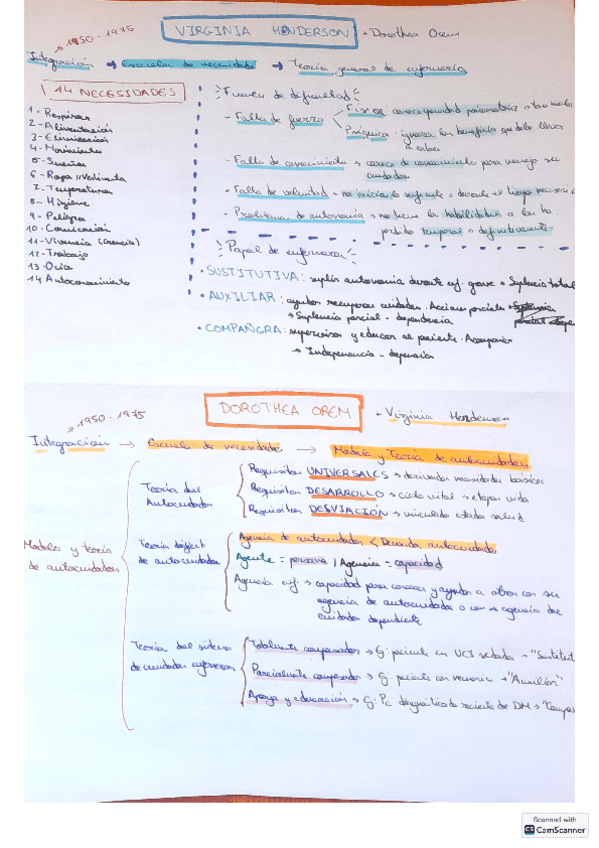 VIRGINIA HENDERSON + Dorothea Orem
1950 - 1975
Integración → Escuela de necesidades → Teoría general de enfermería
14 NECESSIDADES
1 - Respirar
2 - Alimentación
3 - Eliminación
4 - Movimiento
5 - Sueño
6 - Ropa
7 - Temperatura
8 - Higiene
9 - Peligro
10 - Comunicación
11 - Vivencia (creencia)
12 - Trabajo
13 - Ocio
14 Autoconocimiento
Fuentes de dificultad
- Falta de fuerza
Física: psicomotriz o tono
Psíquica: ignora los beneficios que debe llevar
a cabo
- Falta de conocimiento → de conocimiento para manejo su
cuidados
- Falta de voluntad → no inicia lo suficiente o durante el tiempo
- Problemas de autonomía → no tiene las habilidades o las ha
perdido temporal o definitivamente
Papel de enfermera
• SUSTITUTIVA: suplir autonomía durante enf. grave → Suplencia total
• AUXILIAR: ayudar recuperar cuidados. Acciones parciales
→ Suplencia parcial - dependencia
• COMPAÑERA: supervisar y educar al paciente. Acompañar
→ Independencia -
DOROTHEA OREM + Virginia Henderson
1950 - 1975
Integración → Escuela de necesidades → Modelo y Teoría de autocuidados
Modelo y teoría
de autocuidados
Teoría del
Autocuidado
Requisitos UNIVERSALES → derivados necesidades básicas
Requisitos DESARROLLO → ciclo vital → etapas vida
Requisitos DESVIACIÓN → vinculado estado salud
Teoría déficit
de autocuidados
Agencia de autocuidados < Demanda autocuidados
Agente = persona / Agencia = capacidad
Agencia enf. → capacidad para conocer y ayudar a otros con su
agencia de autocuidados o con su agencia de
cuidados dependiente
Teoría del sistema
de cuidados enfermeros
Totalmente compensador → Ej: paciente en UCI sedado →
Parcialmente compensador → Ej: paciente con → "Auxiliar"
Apoyo y educación → Ej: Pc diagnóstico de reciente de DM →
Scanned with
CS CamScanner